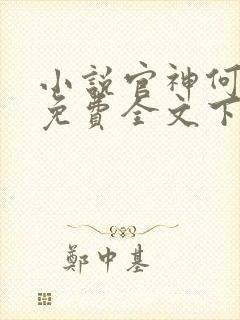 小說官神何
免費全文下
鄭中基